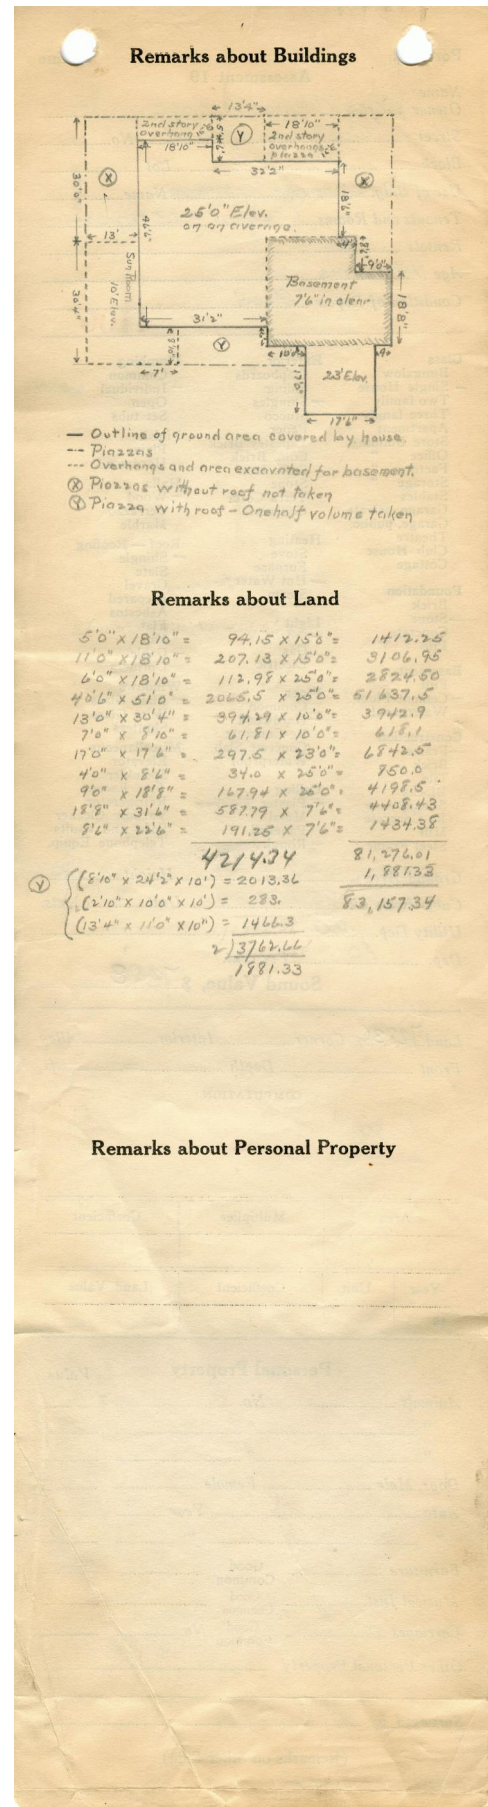 Remarks about Buildings
13'4"
2nd story
overhang
18'10"
5'4"
Y
18'10"
2nd story
overhang &
piazza
32'2"
X
X
30'0"
18'6"
25'0" Elev.
on an average.
46'6"
13'
Sun Room
10' Elev.
30'4"
4'0"
8'6"
9'0"
Basement
7'6" in clear
18'8"
31'2"
8'10"
Y
7'
10'0"
17'0"
23' Elev.
17'6"
— Outline of ground area covered by house
-·- Piazzas
--- Overhangs and area excavated for basement.
X Piazzas without roof not taken
Y Piazza with roof - One half volume taken
Remarks about Land
5'0" x 18'10" = 94.15 x 15'0" = 1412.25
11'0" x 18'10" = 207.13 x 15'0" = 3106.95
6'0" x 18'10" = 112.98 x 25'0" = 2824.50
40'6" x 51'0" = 2065.5 x 25'0" = 51637.5
13'0" x 30'4" = 394.29 x 10'0" = 3942.9
7'0" x 8'10" = 61.81 x 10'0" = 618.1
17'0" x 17'6" = 297.5 x 23'0" = 6842.5
4'0" x 8'6" = 34.0 x 25'0" = 850.0
9'0" x 18'8" = 167.94 x 25'0" = 4198.5
18'8" x 31'6" = 587.79 x 7'6" = 4408.43
8'6" x 22'6" = 191.25 x 7'6" = 1434.38
4214.34 81,276.01
Y (8'10" x 24'2" x 10') = 2013.36 1,881.33
(2'10" x 10'0" x 10') = 283. 83,157.34
(13'4" x 11'0" x 10") = 1466.3
2)3762.66
1881.33
Remarks about Personal Property